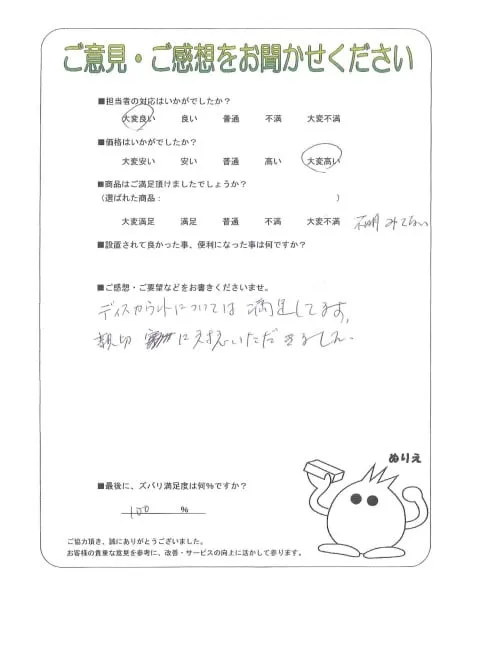 ご意見・ご感想をお聞かせください
■担当者の対応はいかがでしたか？
大変良い 良い 普通 不満 大変不満
■価格はいかがでしたか？
大変安い 安い 普通 高い 大変高い
■商品はご満足頂けましたでしょうか？
（選ばれた商品： ）
大変満足 満足 普通 不満 大変不満 みてない
■設置されて良かった事、便利になった事は何ですか？
■ご感想・ご要望などをお書きくださいませ。
ディスカウントについては満足してます。
親切 に対応いただきました。
ぬりえ
■最後に、ズバリ満足度は何％ですか？
100 ％
ご協力頂き、誠にありがとうございました。
お客様の貴重な意見を参考に、改善・サービスの向上に活かして参ります。